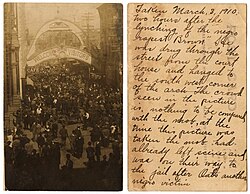 Taken March, 3, 1910
two hours after the
lynching of the negro
rapest Brown. He
was drug through the
street from the court
house and hanged to
the south west corner
of the arch. The crowd
seen in the picture
is nothing to be compared
with the mob, at the
time the picture was
taken the mob had
already left scene, and
was on their way to
the jail after another
negro victim